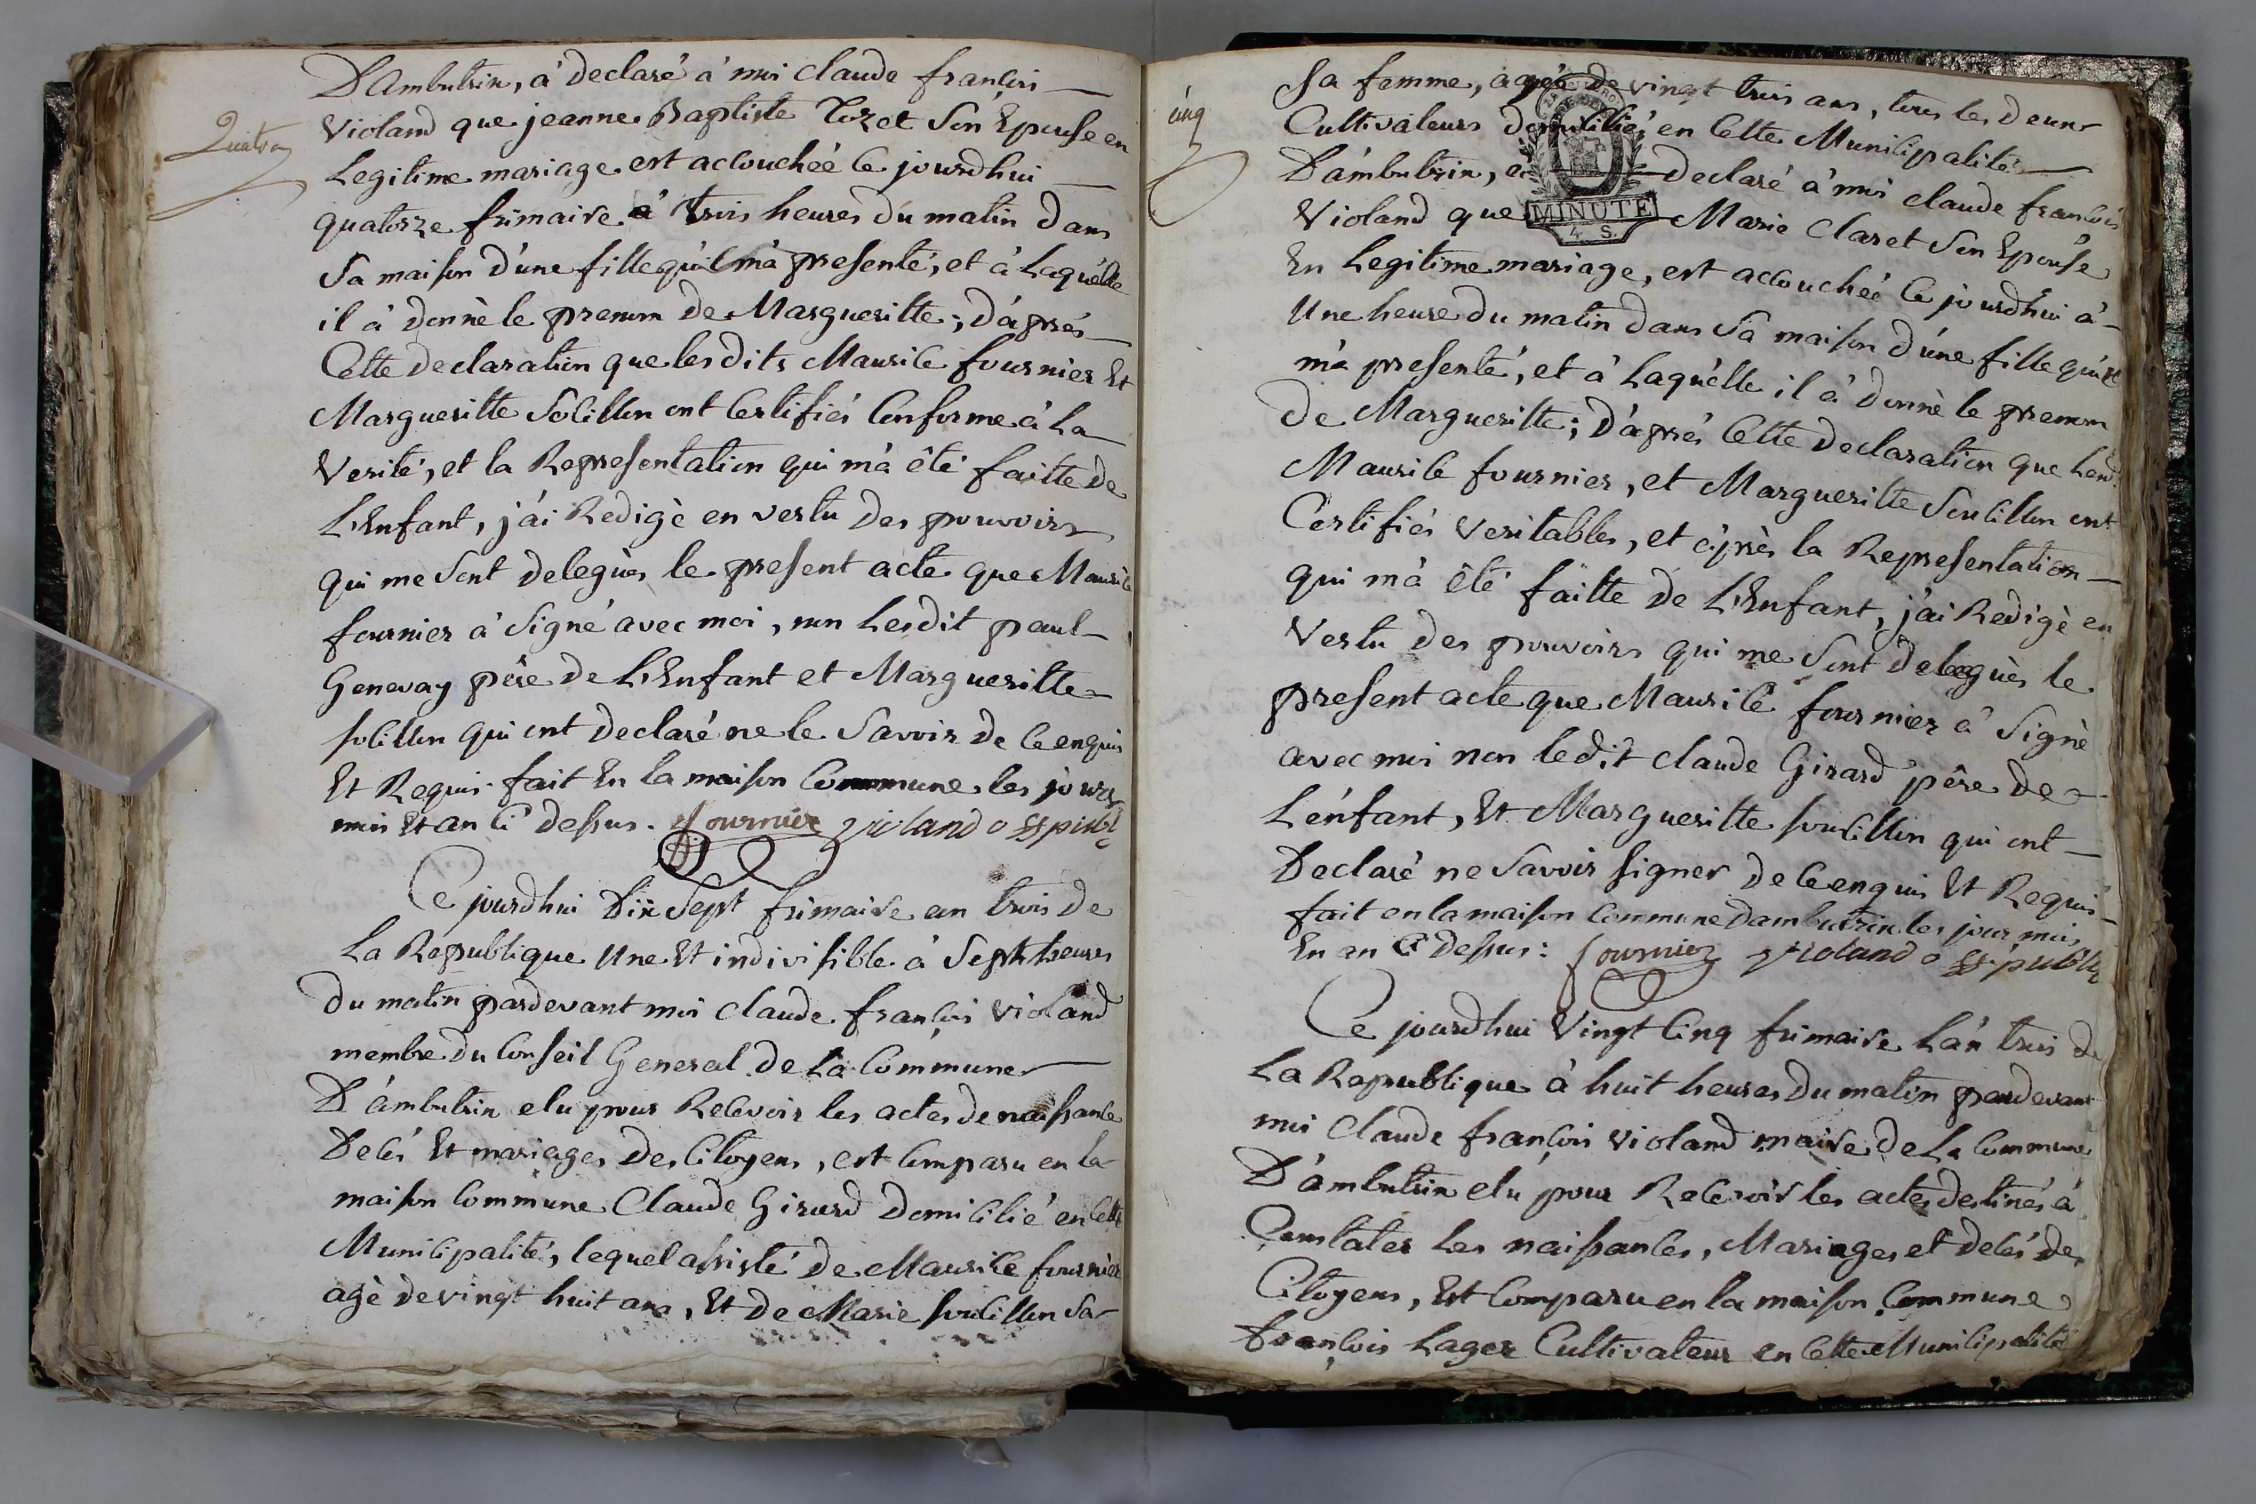 Quatre
D'Ambutrin, à declaré à moi claude françois
Violand que jeanne Baptiste Tozet Son Epouse en
Legitime mariage est accouchéé Ce jourdhui
quatorze frimaire à trois heures du matin dans
Sa maison d'une fille qu'il m'à presenté, et à Laquélle
il à donnè le prenom de Margueritte ; d'aprés
Cette declaration que lesdits Maurice fournier Et
Margueritte Solillon ont Certifiés Conforme à La
Verité, et la Representation qui m'à êté faitte de
L'Enfant, j'ai Redigè en vertu des pouvoirs
qui me Sont deleguès le present acte que Maurice
fournier à Signé avec moi, non Lesdit paul
Genevay pére de L'Enfant et Margueritte
solillon qui ont declaré ne le Savoir de Ce enquis
Et Requis. fait En la maison Commune les jours
mois Et an Ci dessus. fournier violand o ff publ
Ce jourdhui Dix Sept frimaire an trois de
La Republique Une Et indivisible à Sept heures
du matin pardevant moi claude françois violand
membre du Conseil General de La Commune
D'ámbutrin elu pour Recevoir les actes de naissance
Décés Et mariages des Citoyens, est Comparu en la
maison Commune Claude Girard Domicilié en Cette
Municipalité, lequel assisté de Maurice fournier
agè de vingt huit ans, Et de Marie soulillon Sa
cinq
Sa femme, agéé de vingt trois ans, tous les deux
Cultivateurs domiciliés en Cette Municipalité
D'ámbutrin, a declaré à moi claude françois
Violand que Marie Claret Son Epouse
MINUTE
4. S.
En Legitime mariage, est accouchéé Ce jourdhui à
Une heure du matin dans Sa maison d'úne fille qu'il
m'a presenté, et à Laquélle il à donnè le prenom
de Margueritte ; d'aprés Cette declaration que Lesd.
Maurice fournier, et Margueritte Soulillon ont
Certifiés veritables, et aprés la Representation
qui m'à êté faitte de L'Enfant, j'ai Redigè en
Vertu des pouvoirs qui me Sont deleguès le
present acte que Maurice fournier à Signè
avec moi non ledit claude Girard pére de
L'énfant, Et Margueritte soulillon qui ont
Declaré ne Savoir signer de Ce enquis Et Requis
fait en la maison Commune d'ambutrin les jour mois
En an Ci dessus : fournier violand o ff publ
Ce jourdhui Vingt Cinq frimaire L'án trois de
La Republique à huit heures du matin pardevant
moi Claude françois violand maire de La Commune
D'ámbutrin elú pour Recevoir les actes destinés à
Constater Les naissances, Mariages et decés des
Citoyens, Est Comparu en la maison Commune
françois Lager Cultivateur en Cette Municipalité